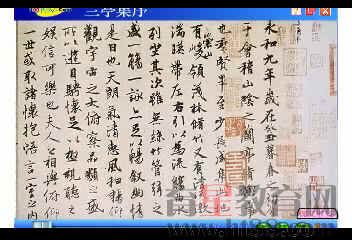 兰亭集序
永和九年歲在癸丑暮春之初
于會稽山陰之蘭亭脩禊
也羣賢畢至少長咸集
有崇山峻領茂林脩竹又有清流激
湍暎帶左右引以為流觴曲水
列坐其次雖無絲竹管弦之
盛一觴一詠亦足以暢敘幽情
是日也天朗氣清惠風和暢仰
觀宇宙之大俯察品類之盛
所以遊目騁懷足以極視聽之
娛信可樂也夫人之相與俯仰
一世或取諸懷抱悟言一室之內
育星教育网